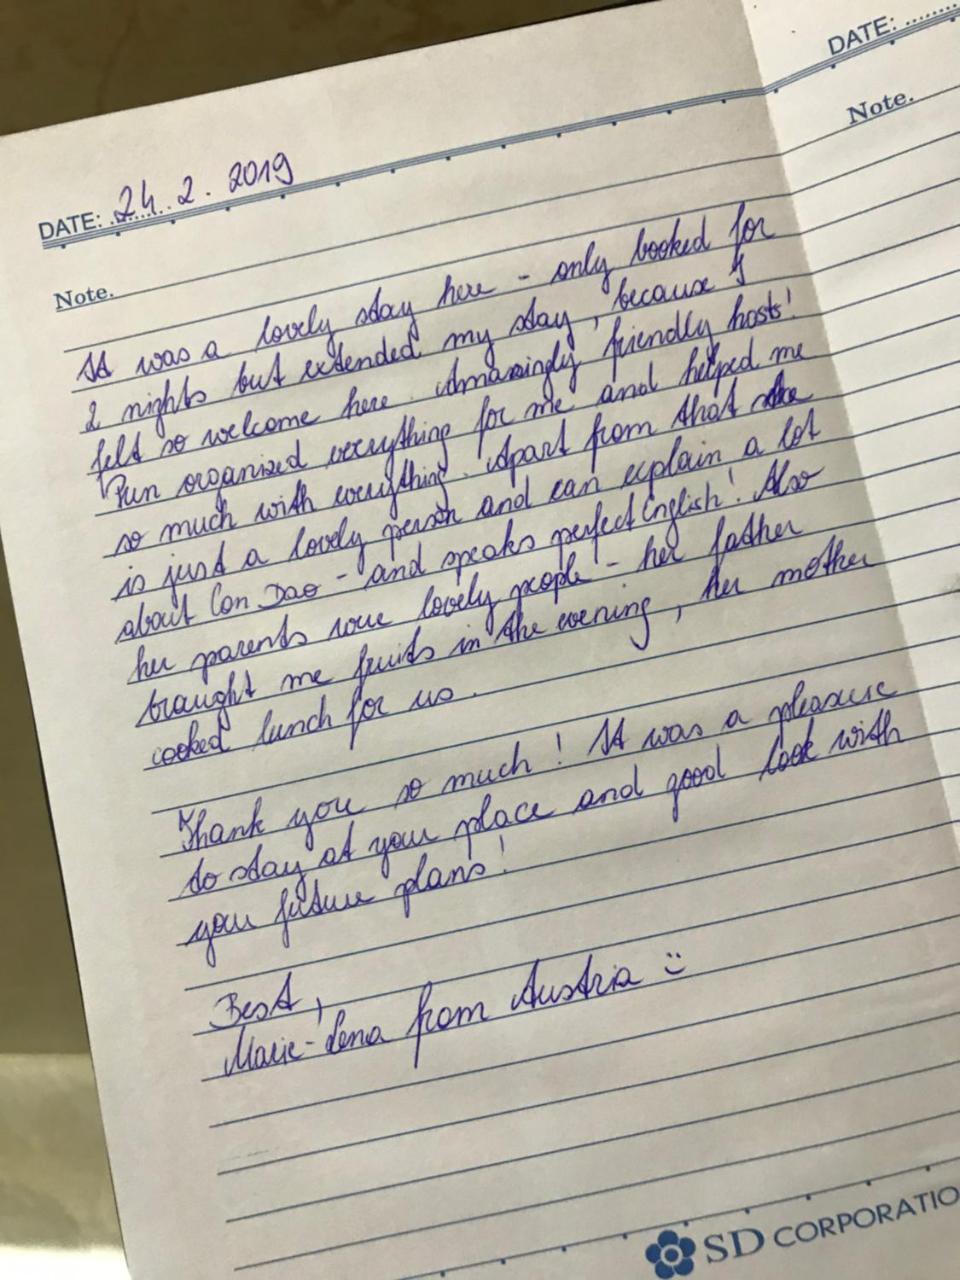 DATE: ..............
Note.
DATE: 24. 2. 2019
Note.
It was a lovely stay here - only booked for
2 nights but extended my stay, because I
felt so welcome here. Amazingly friendly hosts!
Pun organized everything for me and helped me
so much with everything. Apart from that she
is just a lovely person and can explain a lot
about Con Dao - and speaks perfect English! Also
her parents were lovely people - her father
braught me fruits in the evening, her mother
cooked lunch for us.
Thank you so much! It was a pleasure
to stay at your place and good look with
your future plans!
Best,
Marie-Lena from Austria :)
SD CORPORATIO